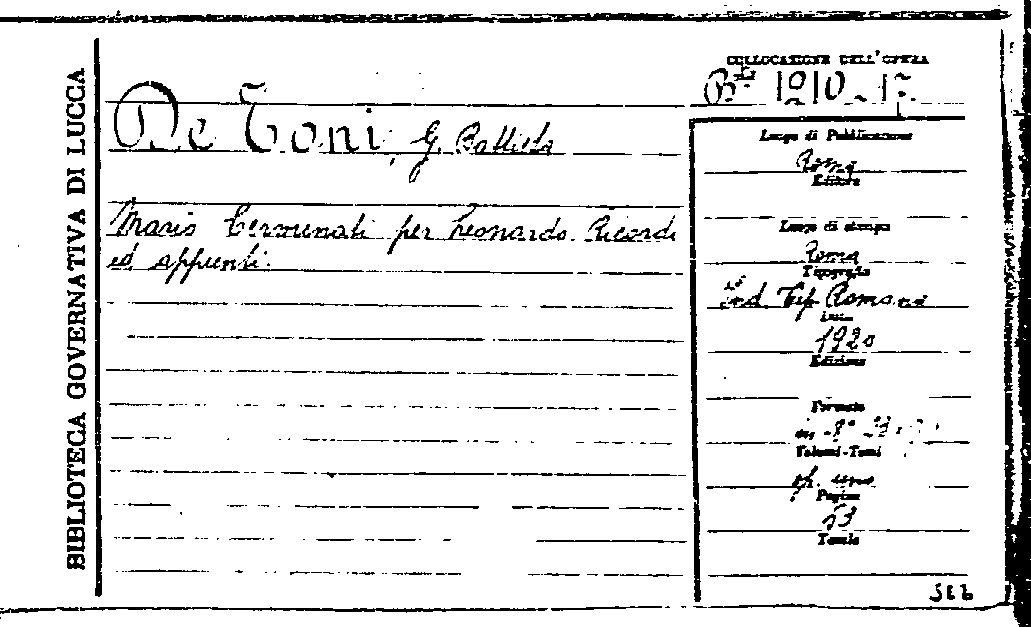 BIBLIOTECA GOVERNATIVA DI LUCCA
COLLOCAZIONE DELL'OPERA
Bta 1910.17
De Toni, G. Battista
Mario Cermenati per Leonardo. Ricordi
ed appunti.
Luogo di Pubblicazione
Roma
Editore
Luogo di stampa
Roma
Tipografia
Ind. Tip. Romana
1920
Edizione
Formato
in 8°
Volumi-Tomi
op. uno
Pagine
53
Tavole